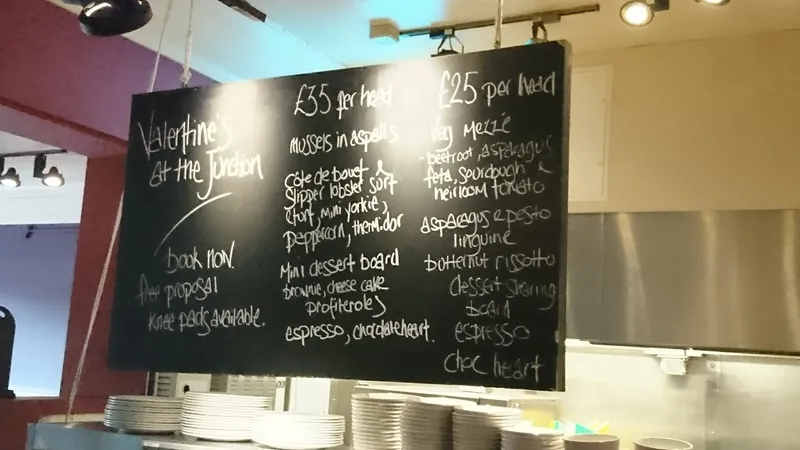 Valentine's
at the Junction
book now.
free proposal
knee pads available.
£35 per head
mussels in aspalls
côte de boeuf &
slipper lobster surf
& turf, mini yorkie,
peppercorn, thermidor
mini dessert board
brownie, cheese cake
profiteroles
espresso, chocolate heart.
£25 per head
Veg mezzie
- beetroot, asparagus
feta, sourdough &
heirloom tomato
asparagus & pesto
linguine
butternut rissotto
dessert sharing
board
espresso
choc heart